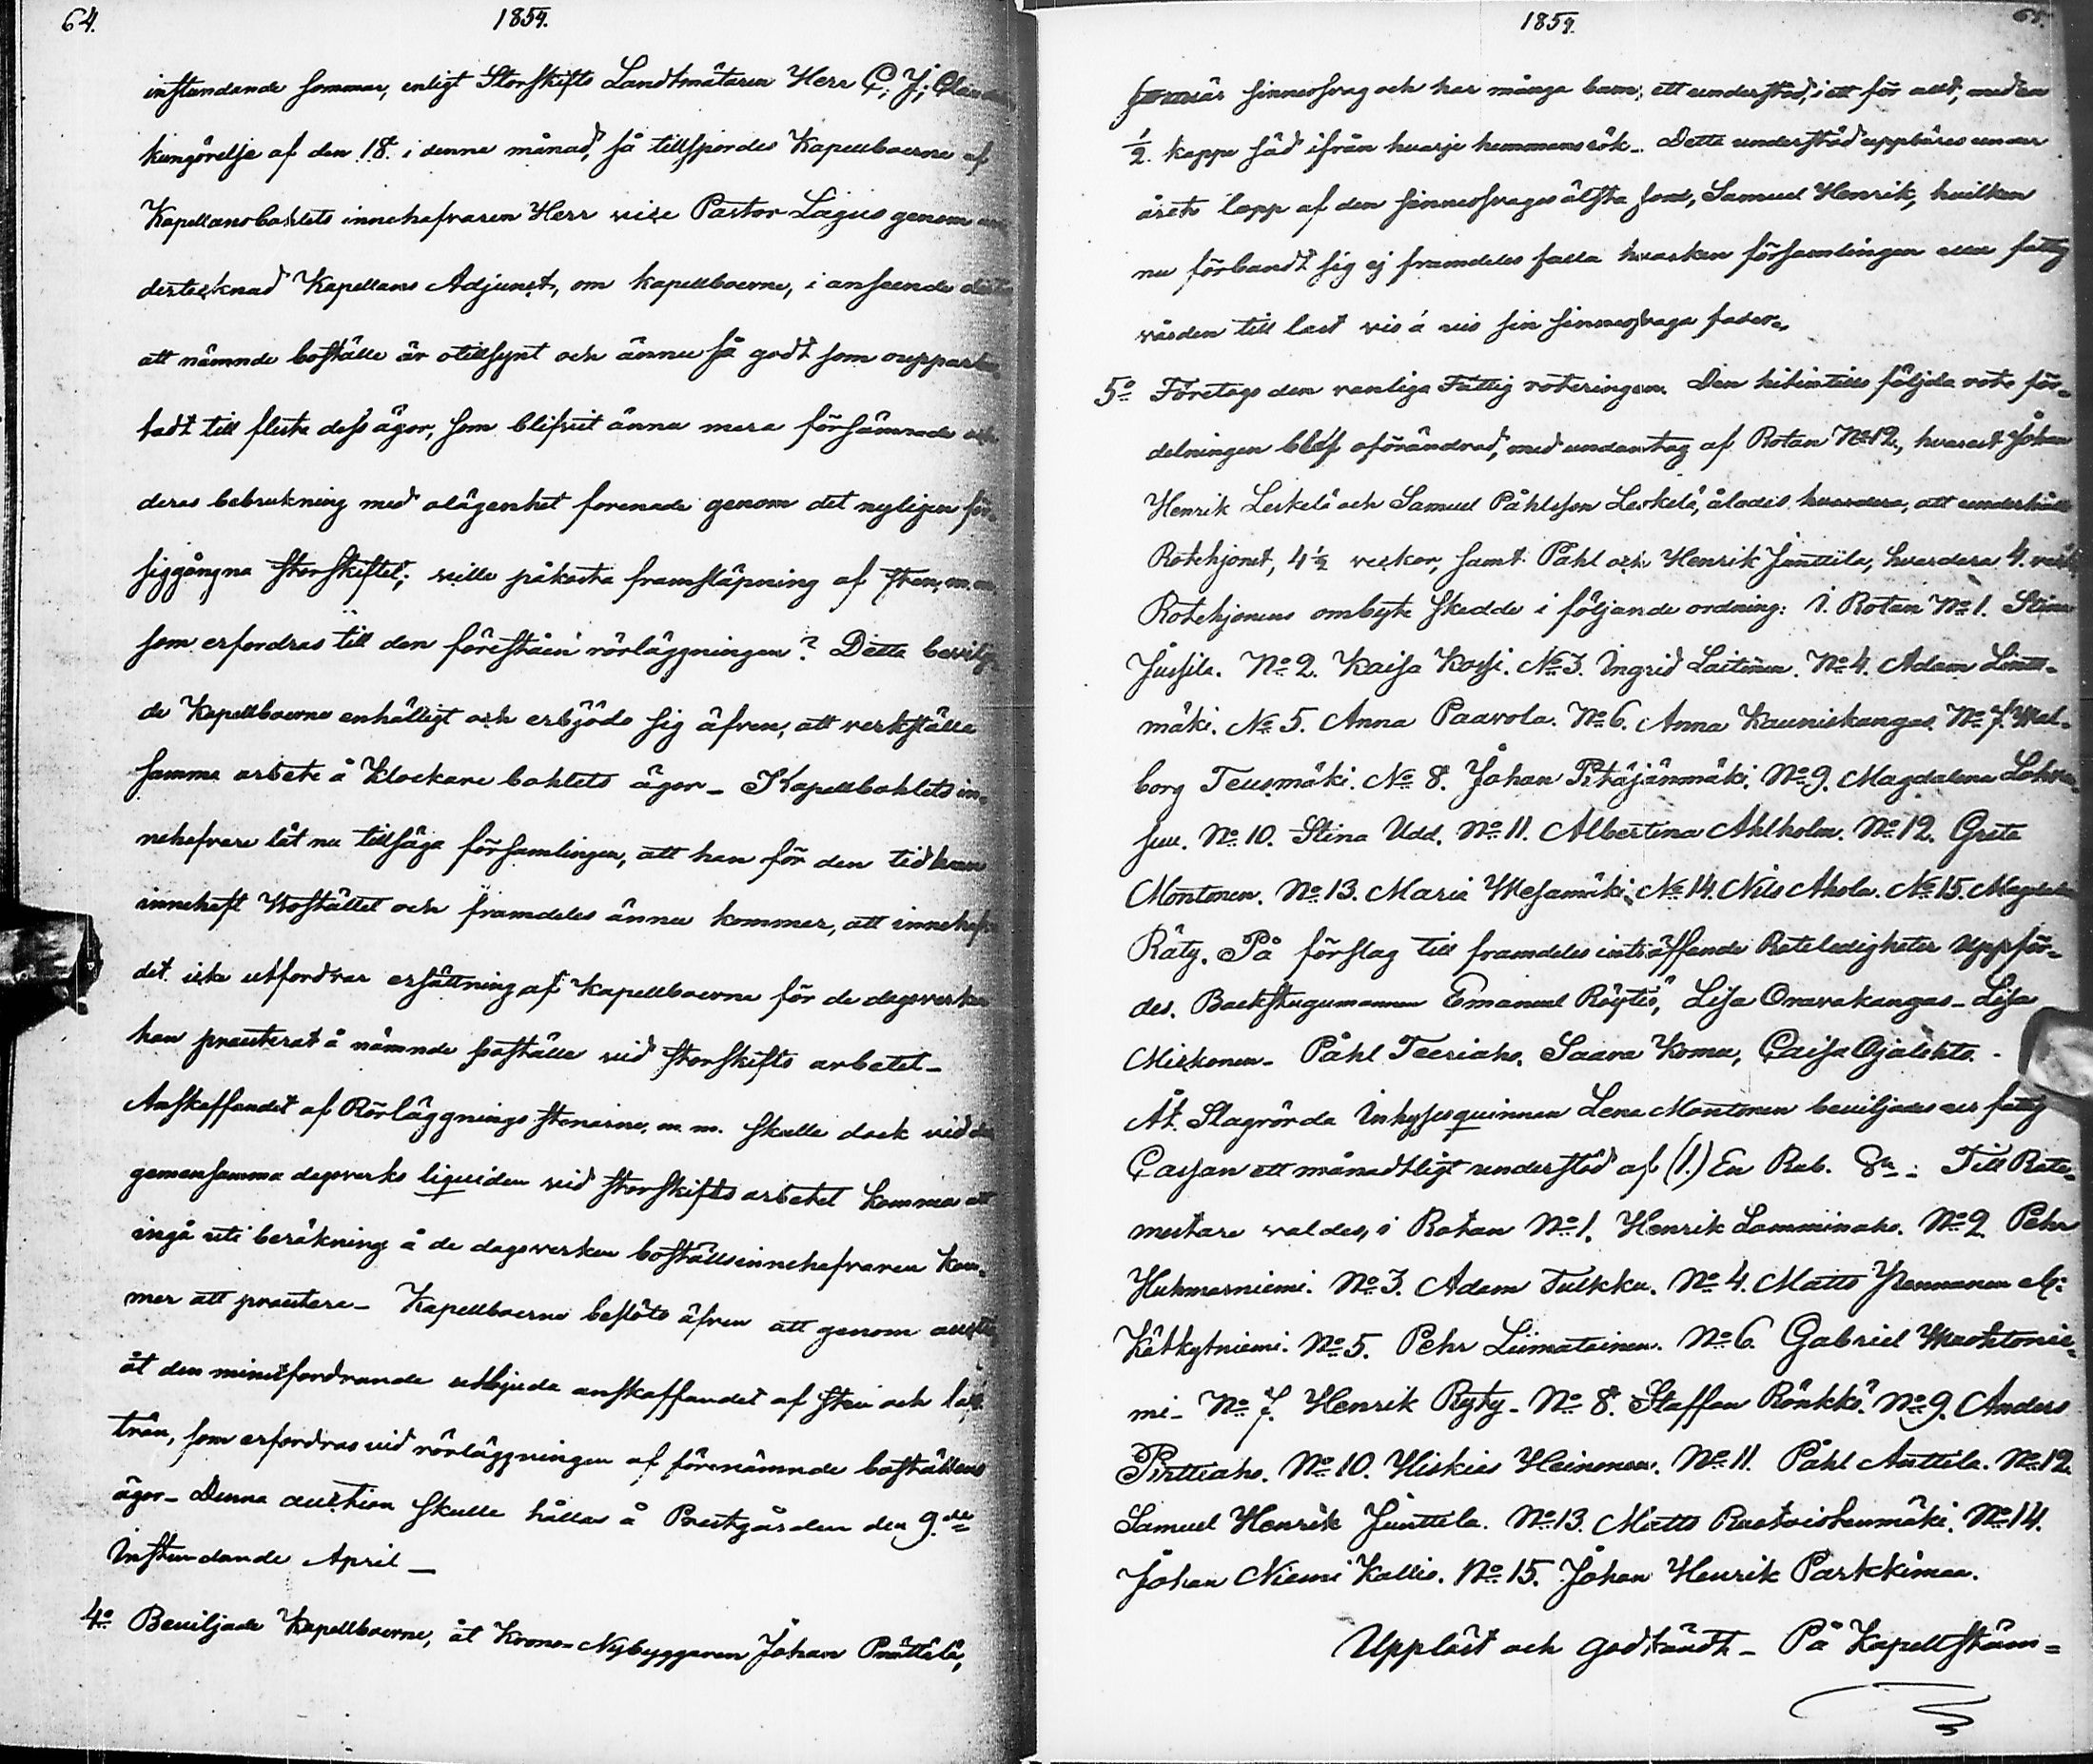 64.
1854.
instundande sommar, enligt Storskifts Landtmätaren Herr C. J.
kungörelse af den 18. i denne månad, så tillspordes Kapellboerne af
Kapellansbohlets innehafvaren Herr vice Pastor Lagus genom
dertecknad Kapellans Adjunct, om kapellboerne, i anseende
att nämnde boställe är otillsynt och ännu så godt som
tadt till flesta dess ägor, som blifvit ännu mera försämrade och
deras bebrukning med olägenhet forenade genom det nyligen för-
siggångna storskiftet; ville påkosta framsläpning af sten, m.m.
som erfordras till den föreståen rörläggningen? Detta bevilja-
de Kapellboerne enhälligt och erbjödo sig äfven, att verkställa
samma arbete å Klockare bohlets ägor - Kapellbohlets in-
nehafvare lät nu tillsäga församlingen, att han för den tid han
innehaft Bostället och framdeles ännu kommer, att innehafva
det icke utfordrar ersättning af Kapellboerne för de dagsverken
han præsterat å nämnde boställe vid storskifts arbetet -
Anskaffandet af Rörläggnings stenarne, m.m. skulle dock vid de
gemensamma dagsverks liquiden vid storskifts arbetet komma att
ingå uti beräkning å de dagsverken boställsinnehafvaren kom-
mer att præstera - Kapellboerne beslöto äfven att genom
åt den minstfordrande utbjuda anskaffandet af sten och
trän, som erfordras vid rörläggningen af förenämnde boställens
ägor - Denna auction skulle hållas å Prestgården den 9.de
Instundande April -
4o Beviljade Kapellboerne, åt Krono-Nybyggaren Johan Prättälä,
1854.
65.
är sinnessvag och har många barn, ett understöd, i ett för allt, med en
1/2. kappe säd ifrån hvarje hemmansrök - Detta understöd uppbäres under
årets lopp af den sinnessvages älsta son, Samuel Henrik, hvilken
nu förbandt sig ej framdeles falla hvarken församlingen eller fattig
vården till last vis á vis sin sinnessvaga fader.
5o Företogs den vanliga Fattig roteringen. Den hitintills följda rote för-
delningen blef oförändrad, med undantag af Rotan No 12., hvarest Johan
Henrik Leskelä och Samuel Påhlsson Leskelä, ålades hvardera, att underhålla
Rotehjonet, 4 1/2 veckor, samt Påhl och Henrik Junttila, hvardera 4. veckor
Rotehjonens ombyte skedde i följande ordning: I. Rotan No 1. Stina
Jussila. No 2. Kaisa Kossi. No 3. Ingrid Laitinen. No 4. Adam
mäki. No 5. Anna Paavola. No 6. Anna Kauniskangas. No 7. Wal-
borg Teusmäki. No 8. Johan Pitäjänmäki. No 9. Magdalena Lohva-
suu. No 10. Stina Udd. No 11. Albertina Ahlholm. No 12. Greta
Montonen. No 13. Maria Wesamäki. No 14. Nils Ahola. No 15. Magdalena
Räty. På förslag till framdeles inträffande Roteledigheter uppför-
des. Backstugumannen Emanuel Röytiö, Lisa Oravakangas - Lisa
Miskonen - Påhl Teeriaho. Saara Komu, Caisa Ojalehto. -
Åt Slagrörda Inhysesquinnan Lena Montonen beviljades ur fattig
Cassan ett månadtligt understöd af (1.) En Rub. Sr. - Till Rote-
mestare valdes, i Rotan No 1. Henrik Lamminaho. No 2. Pehr
Huhmarniemi. No 3. Adam Tulkku. No 4. Matts Pennanen el:
Kätkytniemi. No 5. Pehr Liimatainen. No 6. Gabriel Wachtonie-
mi - No 7. Henrik Ryty - No 8. Staffan Rönkkö. No 9. Anders
Pirttiaho. No 10. Hiskias Heinonen. No 11. Påhl Anttila. No 12.
Samuel Henrik Junttila. No 13. Matts Raatoistenmäki. No 14.
Johan Niemi Kallio. No 15. Johan Henrik Parkkinen.
Uppläst och godkändt - På Kapellstäm-